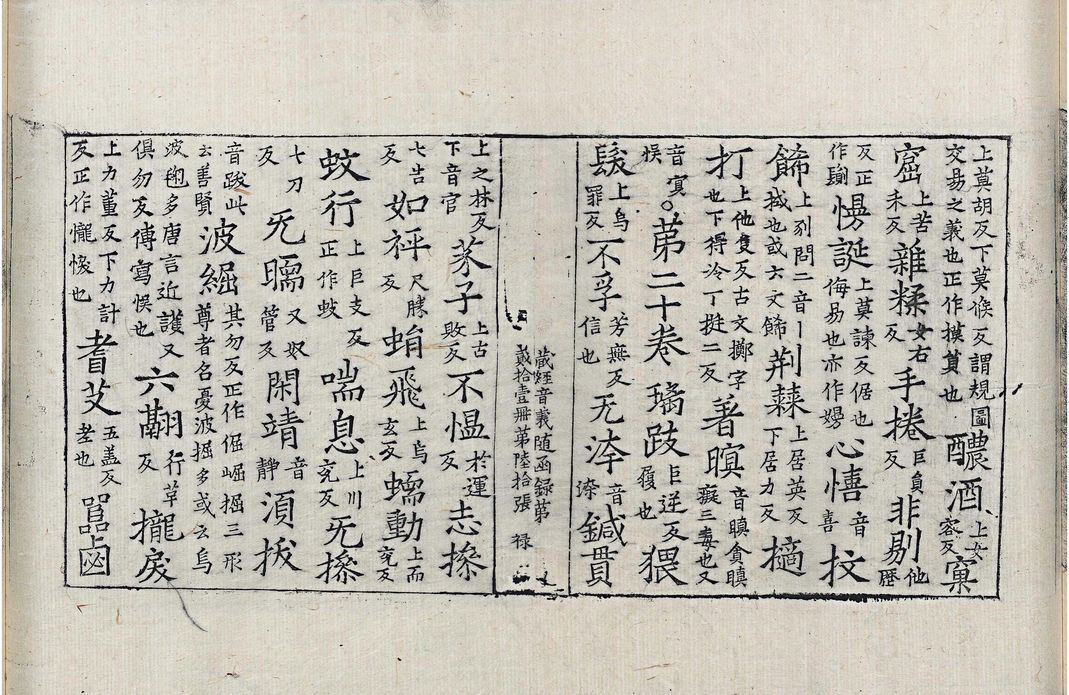 上莫胡反下莫候反謂規圖交易之義也正作摸貿也 醲酒上女容反 窠
窟上苦禾反 雜糅女右反 手捲巨負反 非剔他歷
反正作鬄 慢誕上莫諫反倨也侮易也亦作嫚 心憘音喜 抆
餙上列問二音丨拭也或六文餙 荆棘上居英反下居力反 擿
打上他隻反古文擲字也下得冷丁挺二反 著瞑音瞋貪瞋癡三毒也又
音冥悮。苐二十卷 璚跂巨逆反屐也 猥
鬉上烏罪反 不孚芳無反信也 无渿音渿 鍼貫
蔵經音義隨函録苐
貳拾壹冊苐陸拾張 禄
上之林反下音官 子上古敗反 不愠於運反 志摻
七告反 如秤尺勝反 蜎飛上烏玄反 蠕動上而兖反
蚑行上巨支反正作蚑 喘息上川兖反 旡摻
七刀反 旡曘又奴管反 閑靖音静 湏拔
音跋此云善賢 波崛其勿反正作倔崛掘三形尊者名憂波掘多或云烏
波毱多唐言近護又俱勿反傳寫悮也 六翮行革反 攏戾
上力董反下力計反正作儱悷也 耆艾五盖反耂也 嚚